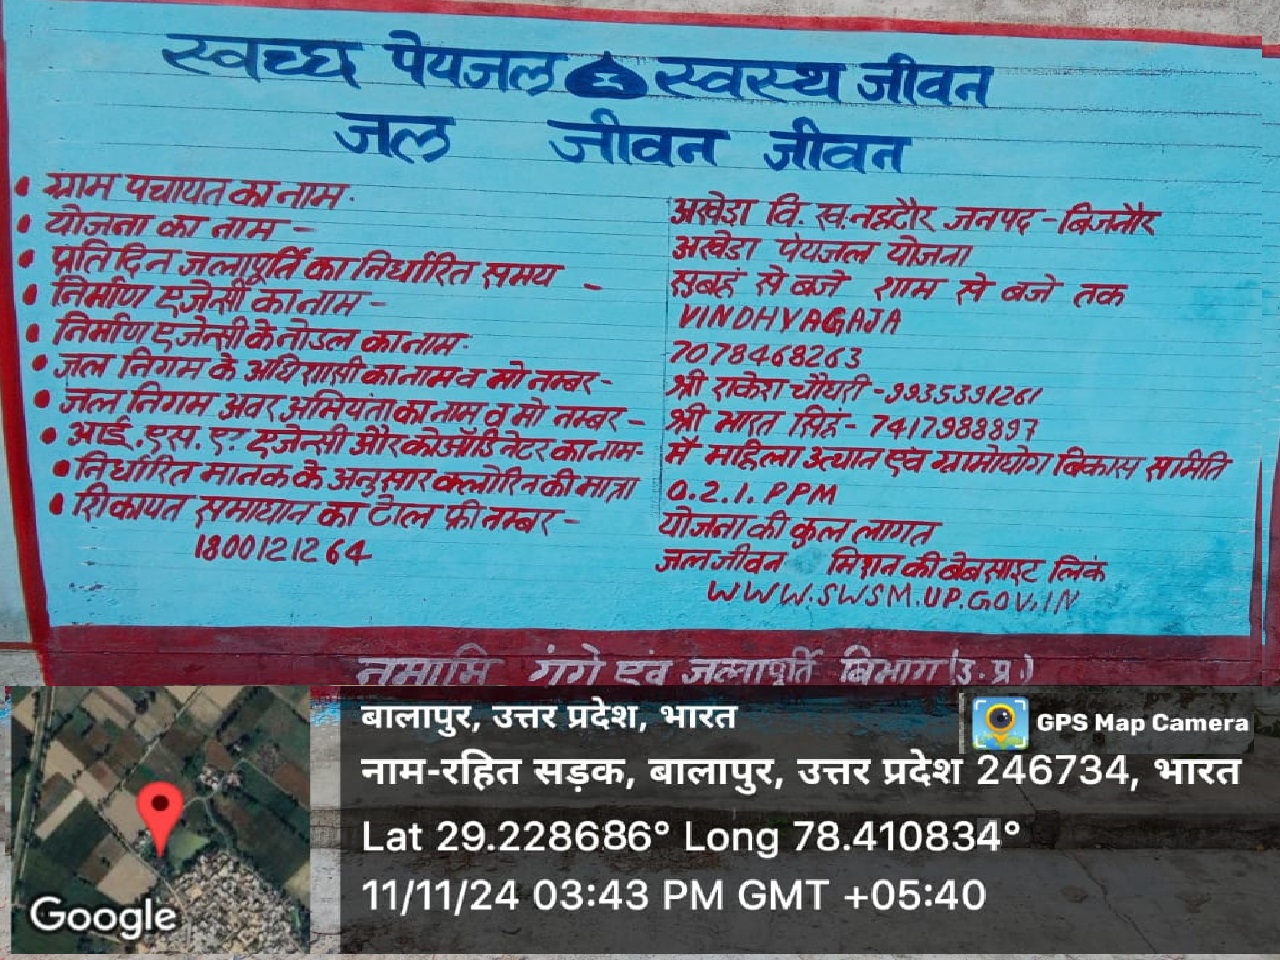 स्वच्छ पेयजल स्वस्थ जीवन
जल जीवन जीवन
• ग्राम पचायत का नाम - अखेडा वि. ख. नहटौर जनपद - बिजनौर
• योजना का नाम - अखेडा पेयजल योजना
• प्रति दिन जलापूर्ति का निर्धारित समय - सुबहं से बजे शाम से बजे तक
• निर्माण एजेंसी का नाम - VINDHYAGAJA
• निर्माण एजेन्सी के नोडल का नाम - 7078468263
• जल निगम के अधिशासी का नाम व मो नम्बर - श्री राकेश चौधरी - 9935391261
• जल निगम अवर अभियंता का नाम व मो नम्बर - श्री भारत सिंह - 7417988897
• आई. एस. ए. एजेन्सी और कोऑर्डिनेटर का नाम - मै महिला उत्थान एवं ग्रामोयोग विकास समिति
• निर्धारित मानक के अनुसार क्लोरिन की मात्रा 0.2.1. PPM
• शिकायत समाधान का टोल फ्री नम्बर - योजना की कुल लागत
1800121264 जल जीवन मिशन की बेबसाइट लिंक
WWW.SWSM.UP.GOV.IN
नमामि गंगे एवं जलापूर्ति विभाग (उ.प्र.)
बालापुर, उत्तर प्रदेश, भारत
GPS Map Camera
नाम-रहित सड़क, बालापुर, उत्तर प्रदेश 246734, भारत
Lat 29.228686° Long 78.410834°
11/11/24 03:43 PM GMT +05:40
Google